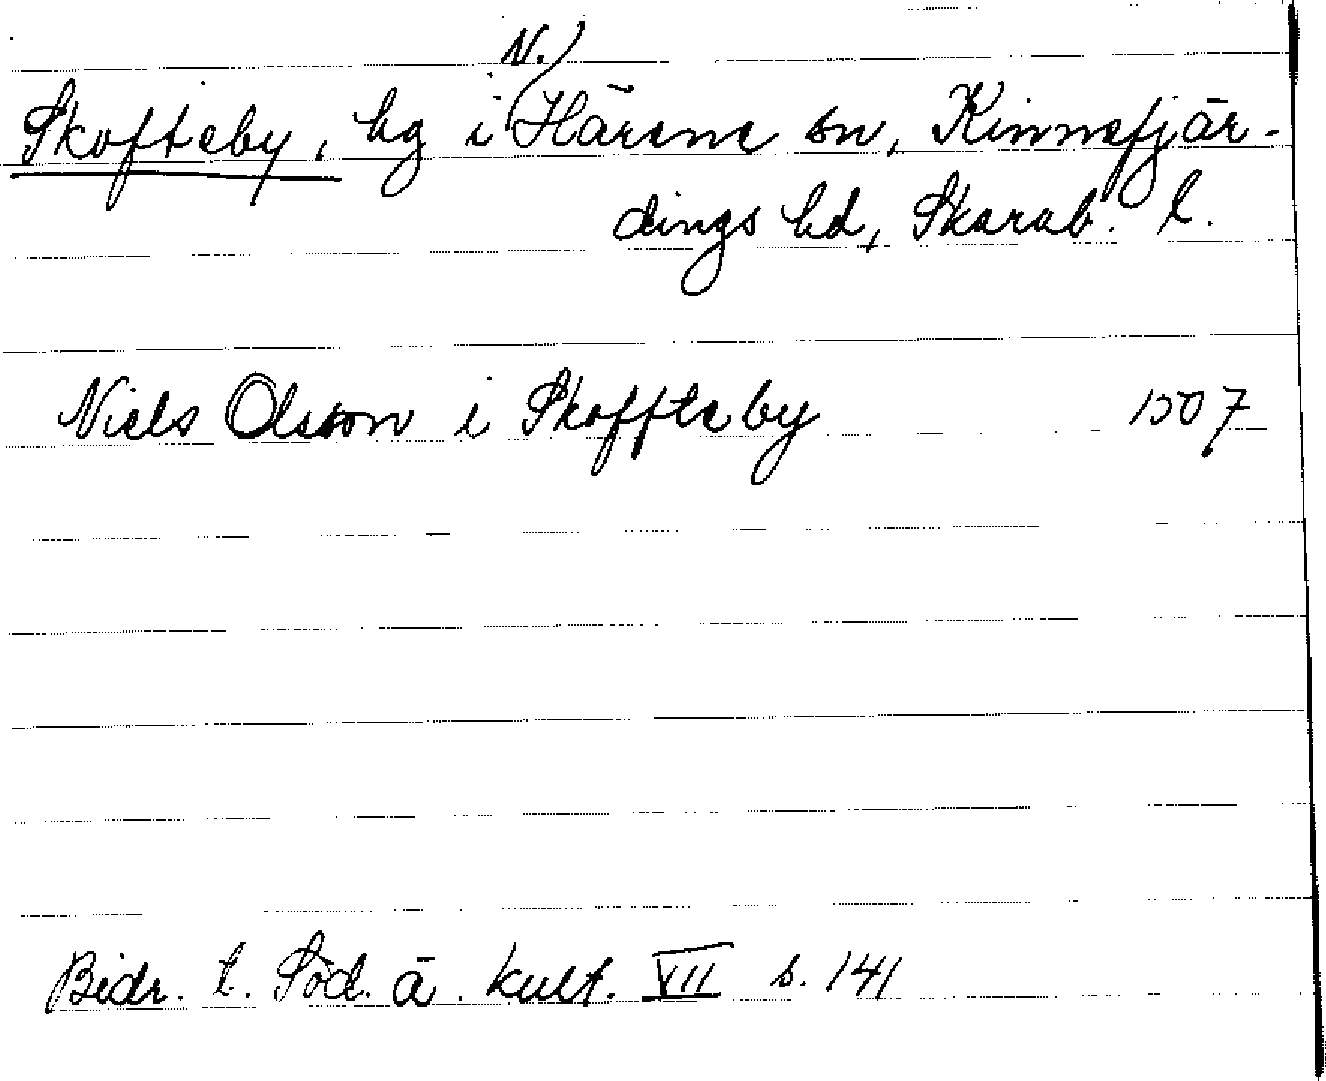 Skofteby, hg i N. Härene sn, Kinnefjär-
dings hd, Skarab. l.
Niels Olsson i Skoffteby 1507
Bidr. t. Söd. ä. kult. VII s. 141